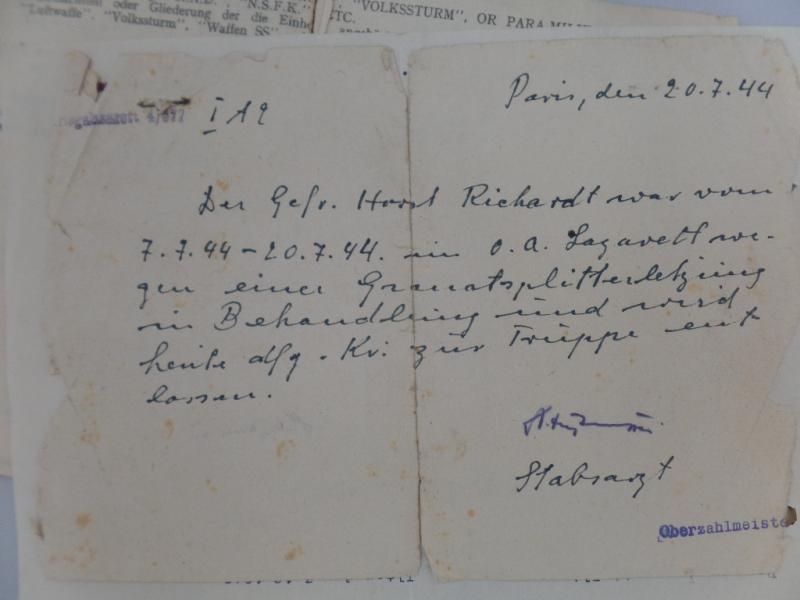 "N.S.F.K."
oder Gliederung der die Einhe
"Luftwaffe". "Volkssturm", "Waffen SS"
"VOLKSSTURM", OR PARA
ETC.
4/677
I A 2
Paris, den 20.7.44
Der Gefr. Horst Richardt war vom
7.7.44 – 20.7.44. im o.a. Lazarett we-
gen einer Granatsplitterletzung
in Behandlung und wird
heute Kv. zur Truppe ent
lassen.
Stabsarzt
Oberzahlmeiste